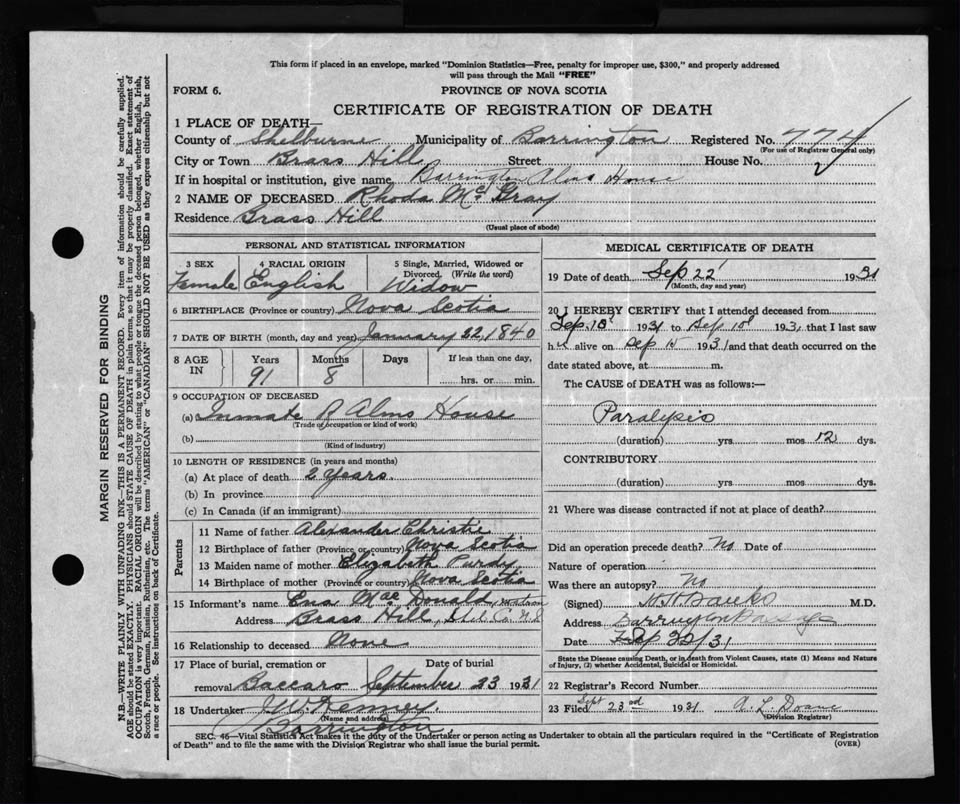 This form if placed in an envelope, marked "Dominion Statistics—Free, penalty for improper use, $300," and properly addressed
will pass through the Mail "FREE"
FORM 6. PROVINCE OF NOVA SCOTIA
CERTIFICATE OF REGISTRATION OF DEATH
1 PLACE OF DEATH—
County of Shelburne Municipality of Barrington Registered No. 774
(For use of Registrar General only)
City or Town Brass Hill Street House No.
If in hospital or institution, give name Barrington Alms House
2 NAME OF DECEASED Rhoda McGray
Residence Brass Hill
(Usual place of abode)
PERSONAL AND STATISTICAL INFORMATION
3 SEX 4 RACIAL ORIGIN 5 Single, Married, Widowed or
Divorced. (Write the word)
Female English Widow
6 BIRTHPLACE (Province or country) Nova Scotia
7 DATE OF BIRTH (month, day and year) January 22, 1840
8 AGE IN Years Months Days If less than one day,
91 8 hrs. or min.
9 OCCUPATION OF DECEASED
(a) Inmate Alms House
(Trade, occupation or kind of work)
(b)
(Kind of industry)
10 LENGTH OF RESIDENCE (in years and months)
(a) At place of death 2 Years.
(b) In province
(c) In Canada (if an immigrant)
Parents
11 Name of father Alexander Christie
12 Birthplace of father (Province or country) Nova Scotia
13 Maiden name of mother Elizabeth Purdy
14 Birthplace of mother (Province or country) Nova Scotia
15 Informant's name Ena MacDonald, Matron
Address Brass Hill, Shel. Co. N.S.
16 Relationship to deceased None
17 Place of burial, cremation or Date of burial
removal Baccaro September 23 1931
18 Undertaker Kenney
(Name and address)
Barrington.
MEDICAL CERTIFICATE OF DEATH
19 Date of death Sep 22 1931
(Month, day and year)
20 I HEREBY CERTIFY that I attended deceased from
Sep. 15 1931 to Sep 15 1931, that I last saw
h er alive on Sep 15 1931 and that death occurred on the
date stated above, at m.
The CAUSE of DEATH was as follows:—
Paralysis
(duration) yrs. mos 12 dys.
CONTRIBUTORY
(duration) yrs. mos. dys.
21 Where was disease contracted if not at place of death?
Did an operation precede death? No Date of
Nature of operation
Was there an autopsy? No
(Signed) Banks M.D.
Address Barrington Passage
Date Sep /31
State the Disease causing Death, or in death from Violent Causes, state (1) Means and Nature
of Injury, (2) whether Accidental, Suicidal or Homicidal.
22 Registrar's Record Number
23 Filed Sept 23rd 1931 A. L. Doane
(Division Registrar)
SEC. 46—Vital Statistics Act makes it the duty of the Undertaker or person acting as Undertaker to obtain all the particulars required in the "Certificate of Registration
of Death" and to file the same with the Division Registrar who shall issue the burial permit. (OVER)
MARGIN RESERVED FOR BINDING
N.B.—WRITE PLAINLY WITH UNFADING INK—THIS IS A PERMANENT RECORD. Every item of information should be carefully supplied.
AGE should be stated EXACTLY. PHYSICIANS should STATE CAUSE OF DEATH in plain terms, so that it may be properly classified. Exact statement of
OCCUPATION is very important. RACIAL ORIGIN will be described by stating to what people or tongue the deceased person belonged, whether English, Irish,
Scotch, French, German, Russian, Ruthenian, etc. The terms "AMERICAN" or "CANADIAN" SHOULD NOT BE USED as they express citizenship but not
a race or people. See instructions on back of Certificate.